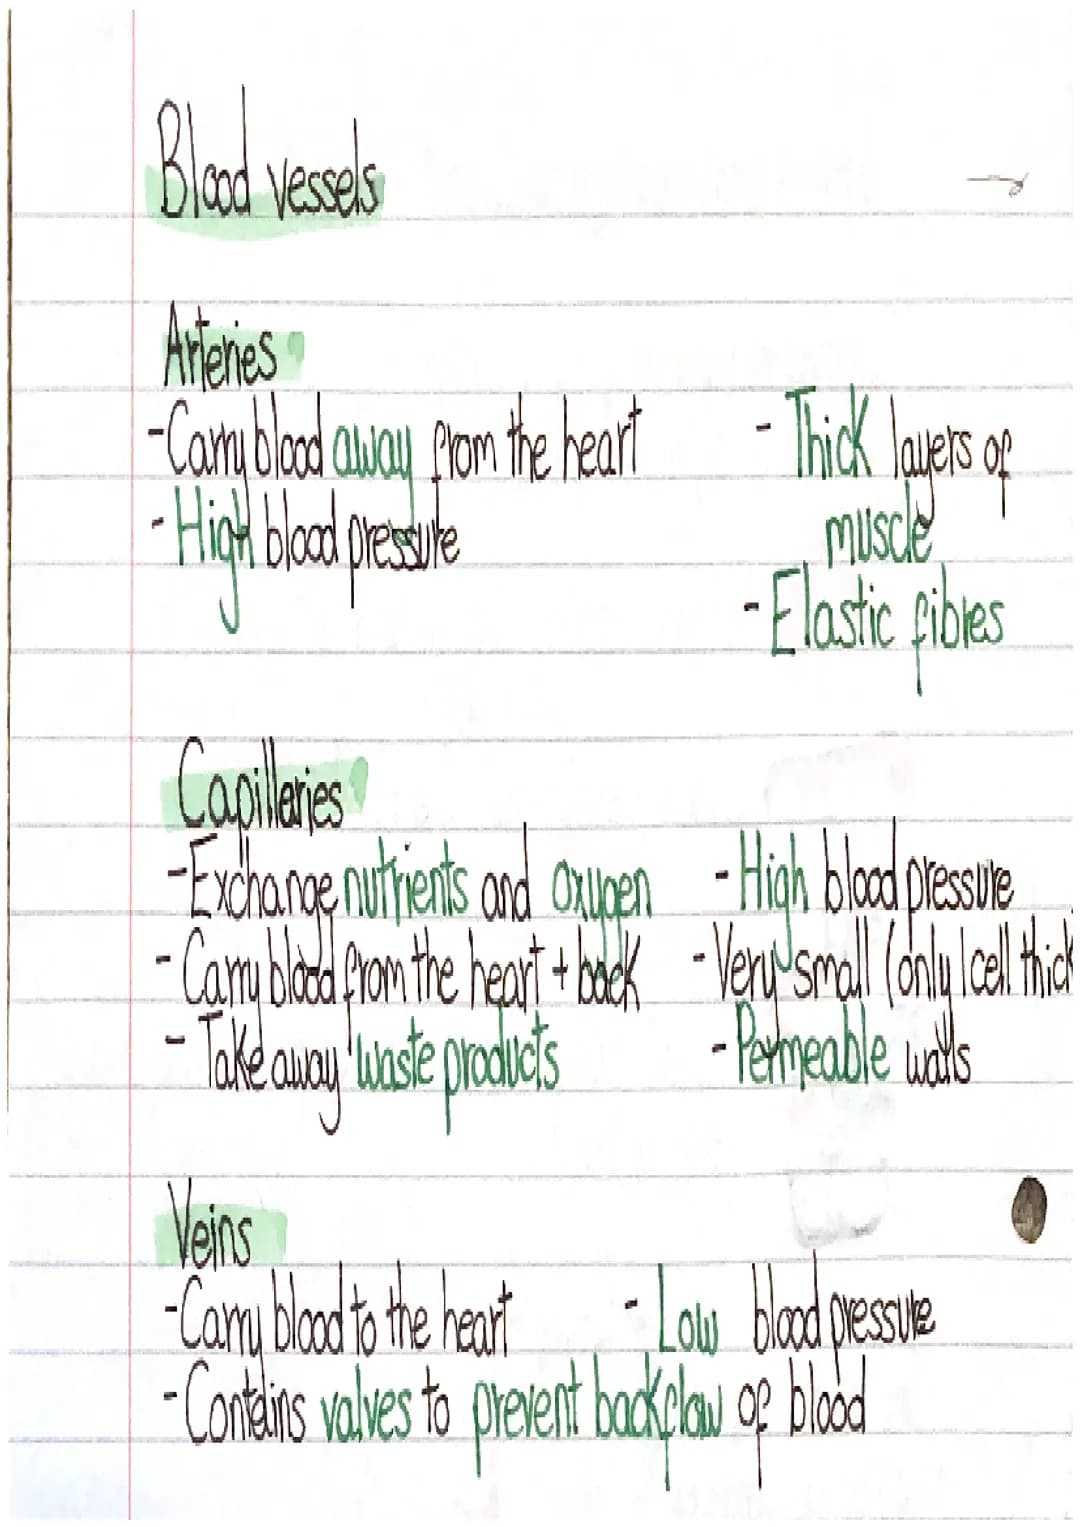 Blood vessels
Arteries
-Carry blood away from the heart
- High blood pressure
- Thick layers of
muscle
- Elastic fibres
Capillaries
-Exchange nutrients and oxygen
- Carry blood from the heart + back
- Take away waste products
- High blood pressure
- Very small (only 1 cell thick
- Permeable walls
Veins
-Carry blood to the heart
- Low blood pressure
-Contains valves to prevent backflow of blood